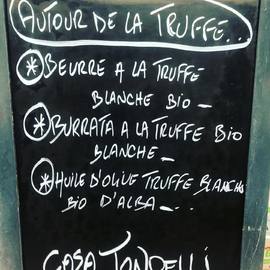 AUTOUR DE LA TRUFFE...
* BEURRE A LA TRUFFE
BLANCHE BIO _
* BURRATA A LA TRUFFE BIO
BLANCHE _
* HUILE D'OLIVE TRUFFE BLANCHE
BIO D'ALBA _...
CASA TONDELLI